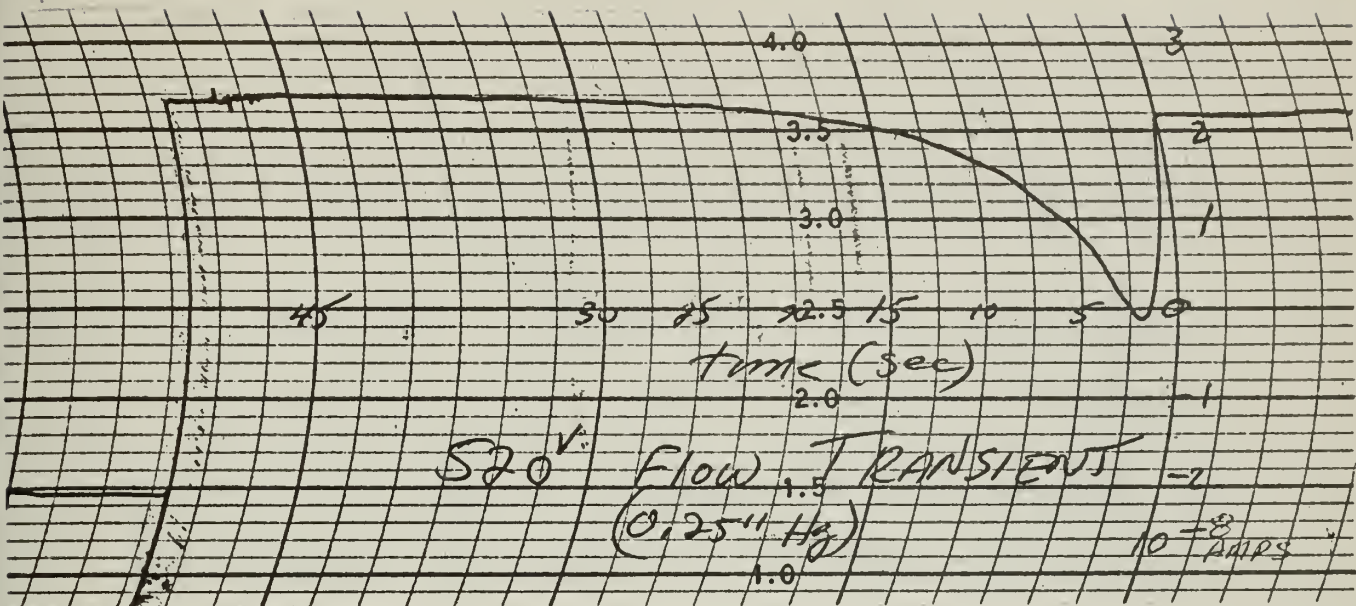 4.0 3
3.5 2
3.0 1
45 30 25 20 2.5 15 10 5 0
time (sec)
2.0 -1
520 V FLOW TRANSIENT
1.5 -2
(0.25" Hg)
10 -8 AMPS
1.0